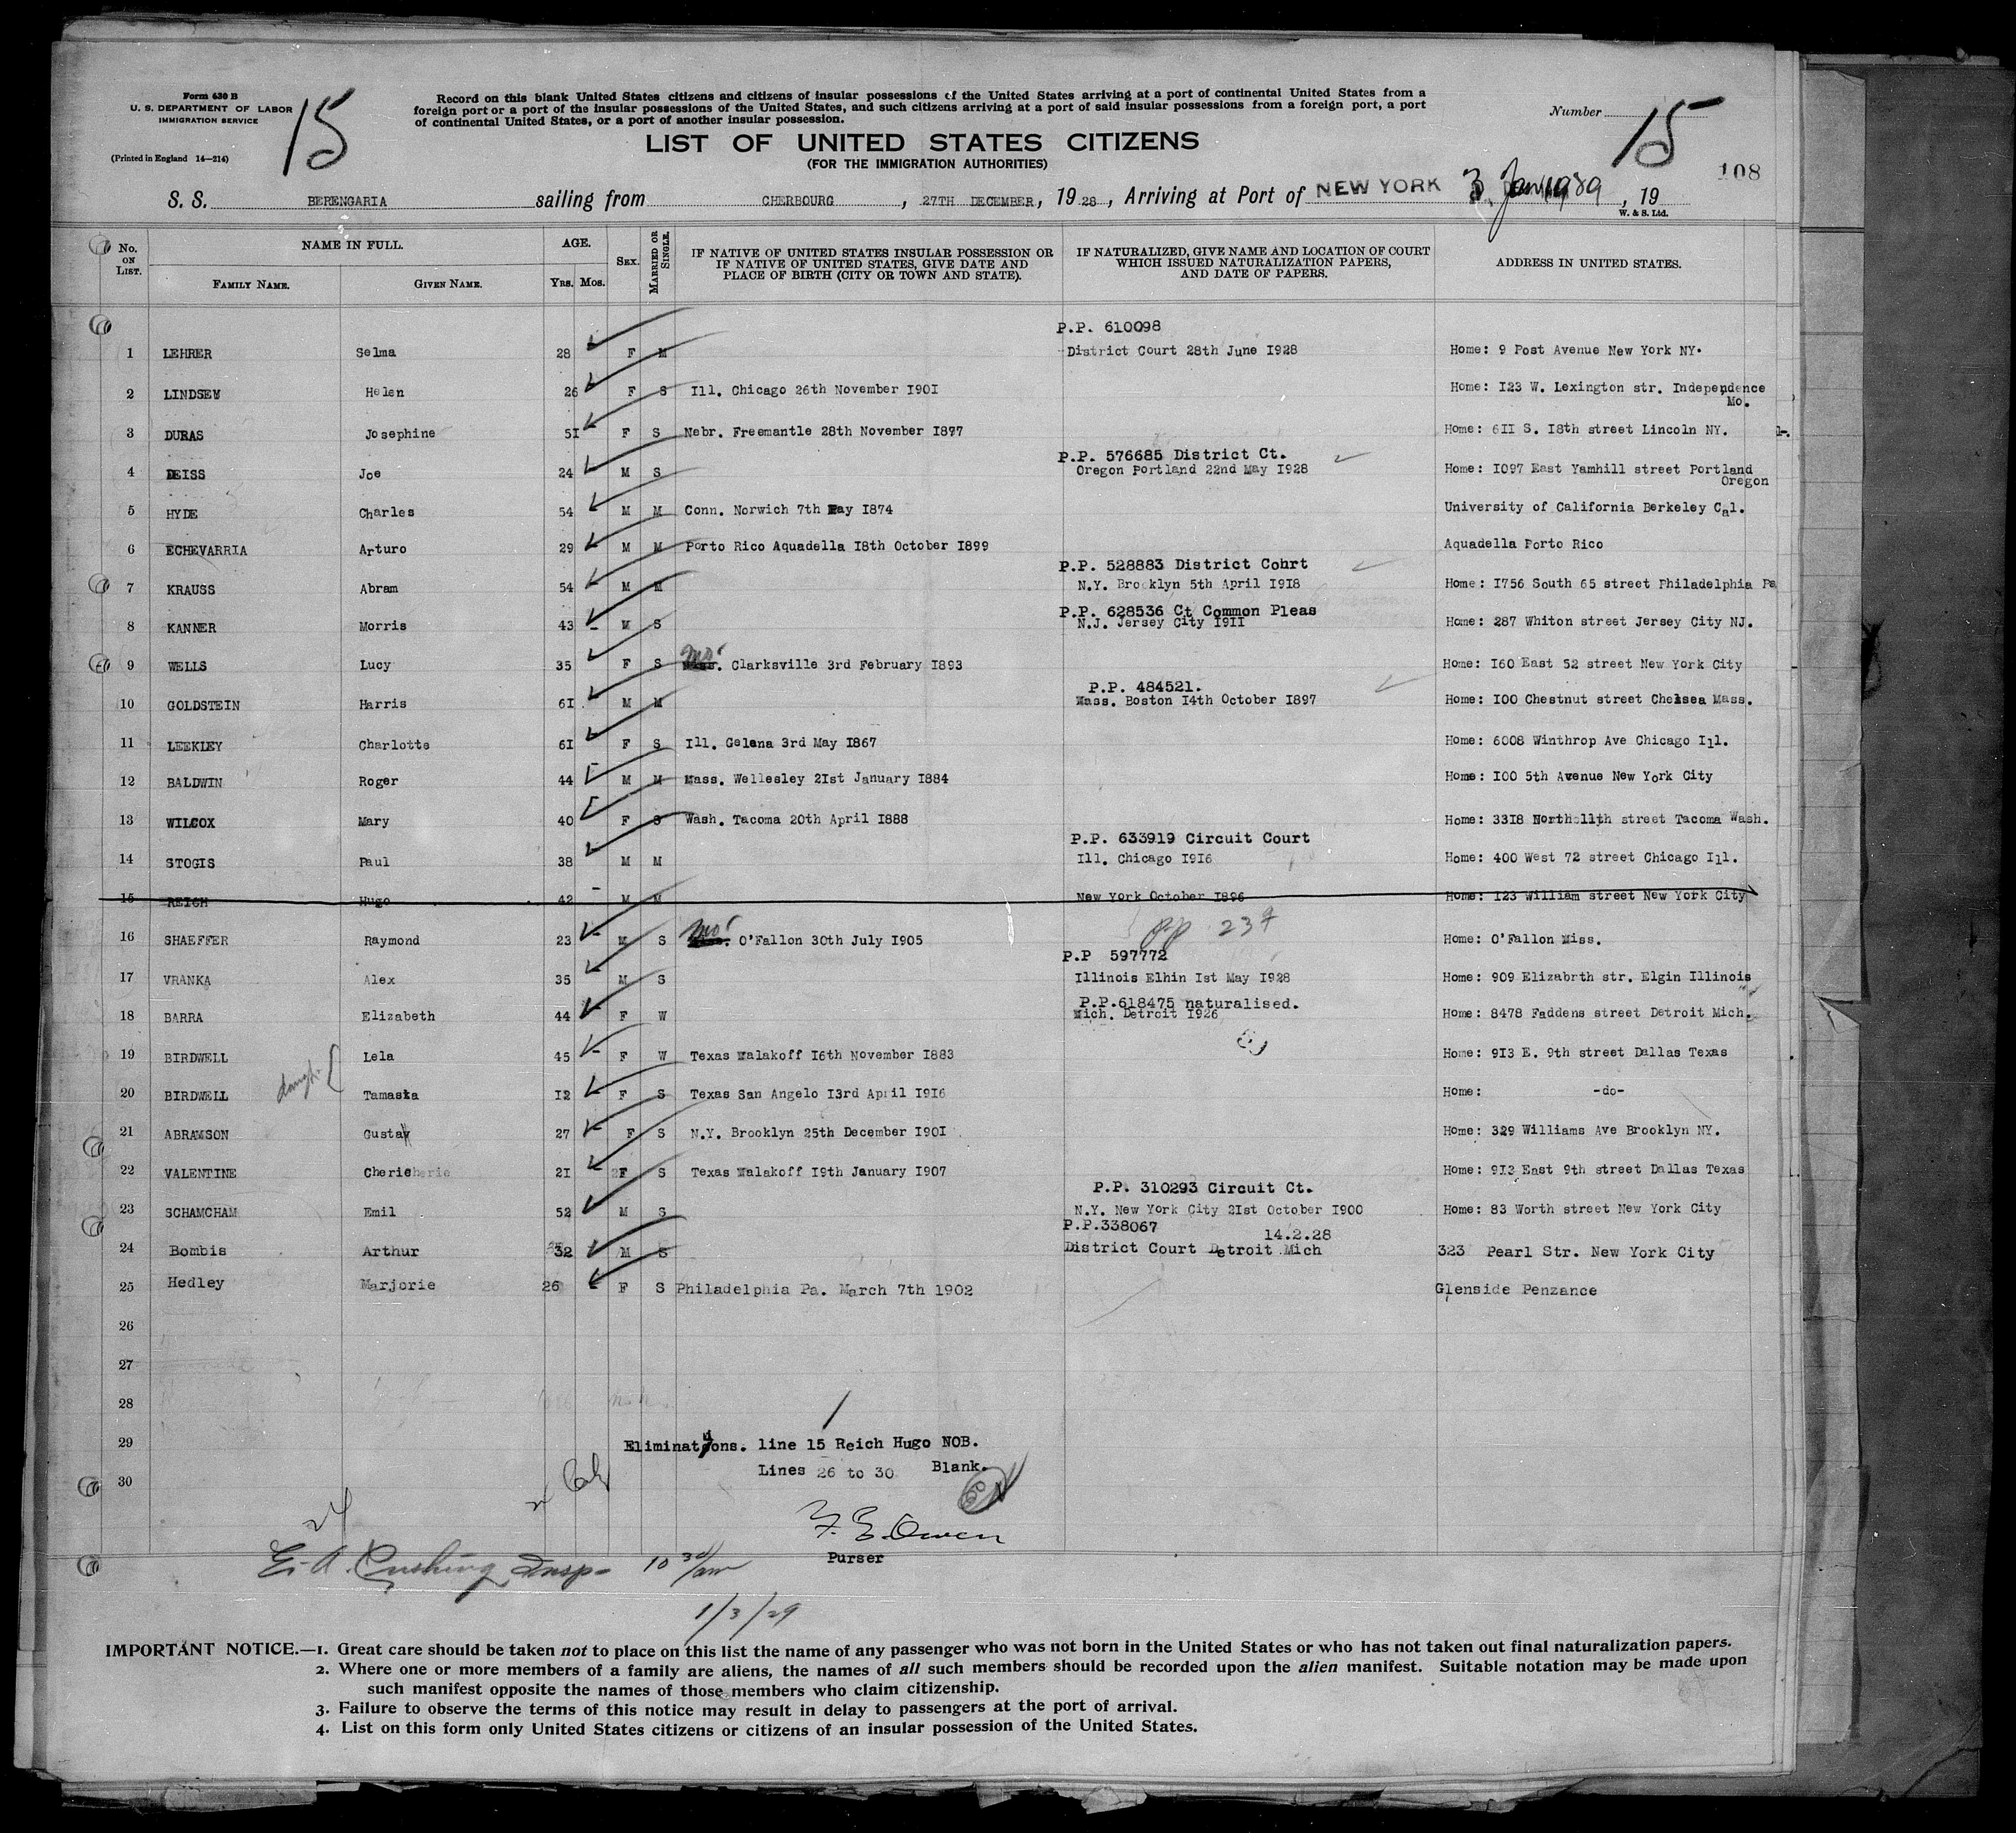 Form 630 B
U. S. DEPARTMENT OF LABOR
IMMIGRATION SERVICE
(Printed in England 14—214)
15
Record on this blank United States citizens and citizens of insular possessions of the United States arriving at a port of continental United States from a
foreign port or a port of the insular possessions of the United States, and such citizens arriving at a port of said insular possessions from a foreign port, a port
of continental United States, or a port of another insular possession.
LIST OF UNITED STATES CITIZENS
(FOR THE IMMIGRATION AUTHORITIES)
Number 15
108
S. S. BERENGARIA sailing from CHERBOURG, 27TH DECEMBER, 1928, Arriving at Port of NEW YORK 3 Jan 1929, 19
W. & S. Ltd.
No. ON LIST. NAME IN FULL. AGE. SEX. MARRIED OR SINGLE. IF NATIVE OF UNITED STATES INSULAR POSSESSION OR IF NATIVE OF UNITED STATES, GIVE DATE AND PLACE OF BIRTH (CITY OR TOWN AND STATE). IF NATURALIZED, GIVE NAME AND LOCATION OF COURT WHICH ISSUED NATURALIZATION PAPERS, AND DATE OF PAPERS. ADDRESS IN UNITED STATES.
FAMILY NAME. GIVEN NAME. YRS. MOS.
P.P. 610098
1 LEHRER Selma 28 F M District Court 28th June I928 Home: 9 Post Avenue New York NY.
2 LINDSEY Helen 26 F S Ill. Chicago 26th November I90I Home: I23 W. Lexington str. Independence
Mo.
3 DURAS Josephine 5I F S Nebr. Freemantle 28th November I877 Home: 6II S. I8th street Lincoln NY.
P.P. 576685 District Ct.
4 DEISS Joe 24 M S Oregon Portland 22nd May I928 Home: I097 East Yamhill street Portland
Oregon
5 HYDE Charles 54 M M Conn. Norwich 7th May I874 University of California Berkeley Cal.
6 ECHEVARRIA Arturo 29 M M Porto Rico Aquadella I8th October I899 Aquadella Porto Rico
P.P. 528883 District Cohrt
7 KRAUSS Abram 54 M M N.Y. Brooklyn 5th April I9I8 Home: I756 South 65 street Philadelphia Pa
P.P. 628536 Ct Common Pleas
8 KANNER Morris 43 M S N.J. Jersey City I9II Home: 287 Whiton street Jersey City NJ.
9 WELLS Lucy 35 F S Mo. Clarksville 3rd February I893 Home: I60 East 52 street New York City
P.P. 484521.
10 GOLDSTEIN Harris 6I M M Mass. Boston I4th October I897 Home: I00 Chestnut street Chelsea Mass.
11 LEEKLEY Charlotte 6I F S Ill. Gelena 3rd May I867 Home: 6008 Winthrop Ave Chicago Ill.
12 BALDWIN Roger 44 M M Mass. Wellesley 2Ist January I884 Home: I00 5th Avenue New York City
13 WILCOX Mary 40 F S Wash. Tacoma 20th April I888 Home: 33I8 North 11th street Tacoma Wash.
P.P. 633919 Circuit Court
14 STOGIS Paul 38 M M Ill. Chicago I9I6 Home: 400 West 72 street Chicago Ill.
15 REICH Hugo 42 M M New York October I896 Home: I23 William street New York City
PP 237
16 SHAEFFER Raymond 23 M S Mo. O'Fallon 30th July I905 Home: O'Fallon Miss.
P.P 597772
17 VRANKA Alex 35 M S Illinois Elhin Ist May I928 Home: 909 Elizabrth str. Elgin Illinois
P.P.618475 naturalised.
18 BARRA Elizabeth 44 F W Mich. Detroit I926 Home: 8478 Faddens street Detroit Mich.
19 BIRDWELL Lela 45 F W Texas Malakoff I6th November I883 Home: 9I3 E. 9th street Dallas Texas
daugh.
20 BIRDWELL Tamaska I2 F S Texas San Angelo I3rd April I9I6 Home: -do-
21 ABRAMSON Gustav 27 F S N.Y. Brooklyn 25th December I90I Home: 329 Williams Ave Brooklyn NY.
22 VALENTINE Cherie 2I F S Texas Malakoff I9th January I907 Home: 9I3 East 9th street Dallas Texas
P.P. 310293 Circuit Ct.
23 SCHAMCHAM Emil 52 M S N.Y. New York City 2Ist October I900 Home: 83 Worth street New York City
P.P.338067 14.2.28
24 Bombis Arthur 32 M S District Court Detroit Mich 323 Pearl Str. New York City
25 Hedley Marjorie 26 F S Philadelphia Pa. March 7th 1902 Glenside Penzance
26
27
28
29 Eliminations. line 15 Reich Hugo NOB.
30 Lines 26 to 30 Blank.
24
F. E. Owen
Purser
E. A. Cushing Insp- 10 30/am
1/3/29
IMPORTANT NOTICE.—1. Great care should be taken not to place on this list the name of any passenger who was not born in the United States or who has not taken out final naturalization papers.
2. Where one or more members of a family are aliens, the names of all such members should be recorded upon the alien manifest. Suitable notation may be made upon
such manifest opposite the names of those members who claim citizenship.
3. Failure to observe the terms of this notice may result in delay to passengers at the port of arrival.
4. List on this form only United States citizens or citizens of an insular possession of the United States.